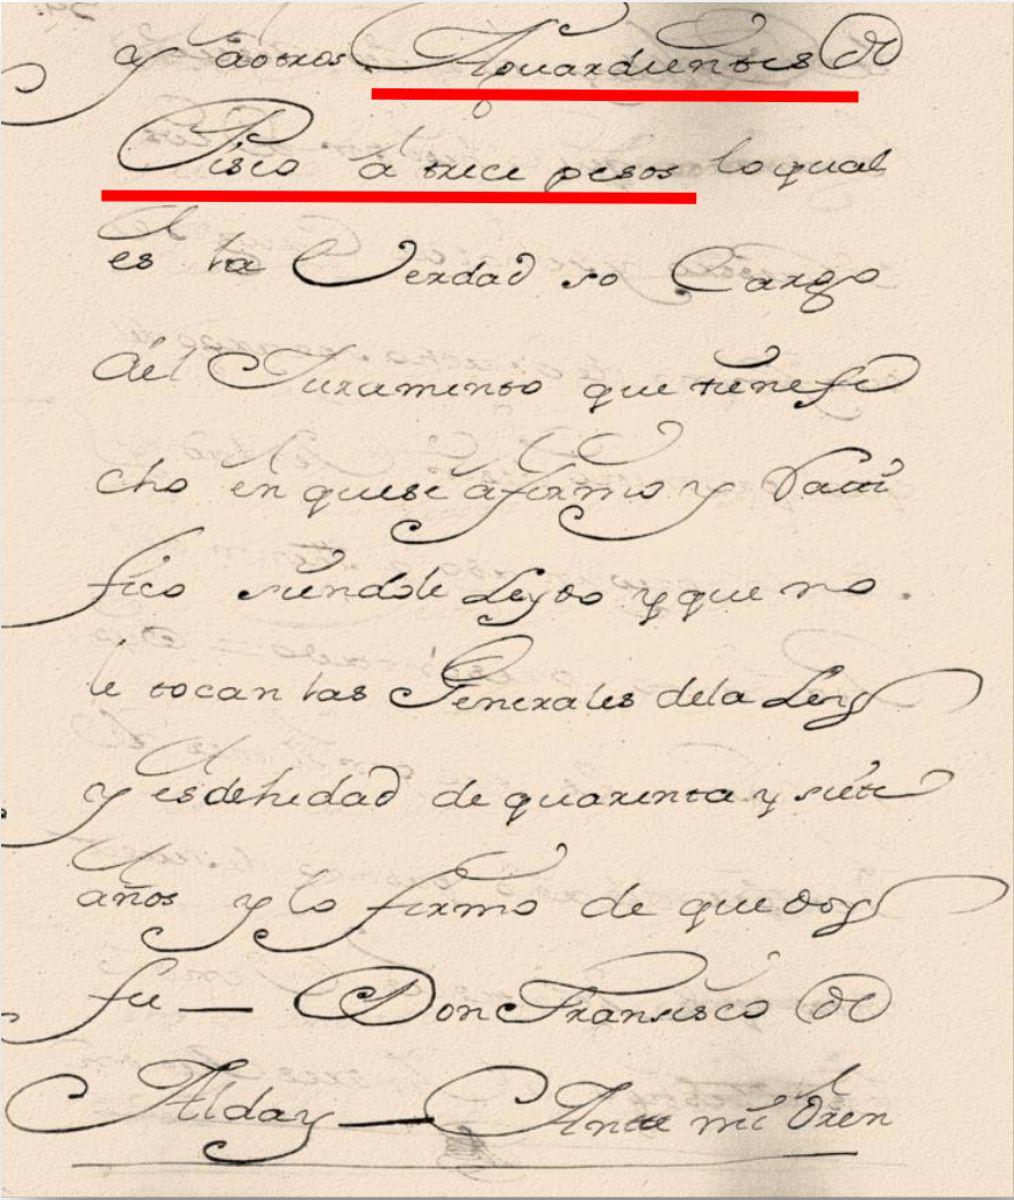 y aotros Aguardientes de
Pisco a trece pesos lo qual
es la Verdad so Cargo
del Juramento que tiene fe
cho en que se afirmo y Rati
fico siendole Leydo y que no
le tocan las Generales de la Ley
y es de hedad de quarenta y siete
años y lo firmo de que doy
fee — Don Fransisco de
Alday — Ante mi Bren